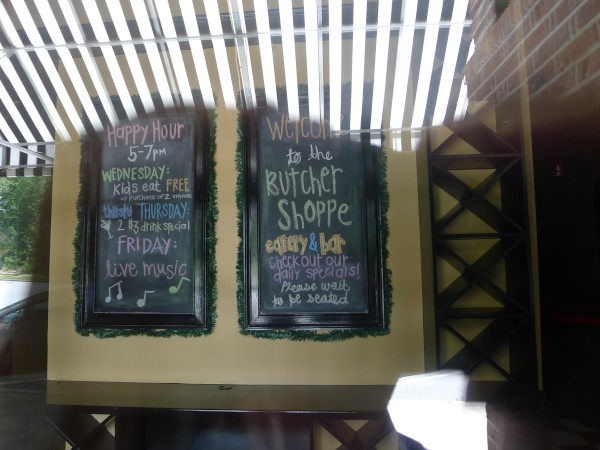 Happy Hour
5-7pm
WEDNESDAY:
Kids eat FREE
w/ purchase of 2 entrées
thirsty THURSDAY:
2 $3 drink special
FRIDAY:
live music
Welcome
to the
Butcher
Shoppe
eatery & bar
check out our
daily specials!
Please wait
to be seated